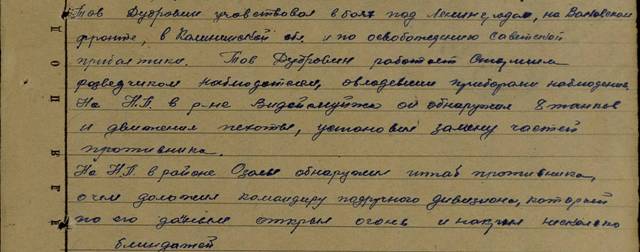 Тов Дубровин участвовал в боях под Ленинградом, на Волховском
фронте, в Калининской обл. и по освобождению Советской
прибалтики. Тов Дубровин работает старшим
разведчиком наблюдателем, овладевши приборами наблюдения
На Н.П. в р-не он обнаружил 8 танков
и движения пехоты, установил замену частей
противника.
На Н.П. в районе Озолы обнаружил штаб противника,
о чем доложил командиру подручного дивизиона, который
по его даным открыл огонь и накрыл несколько
блиндажей
для под